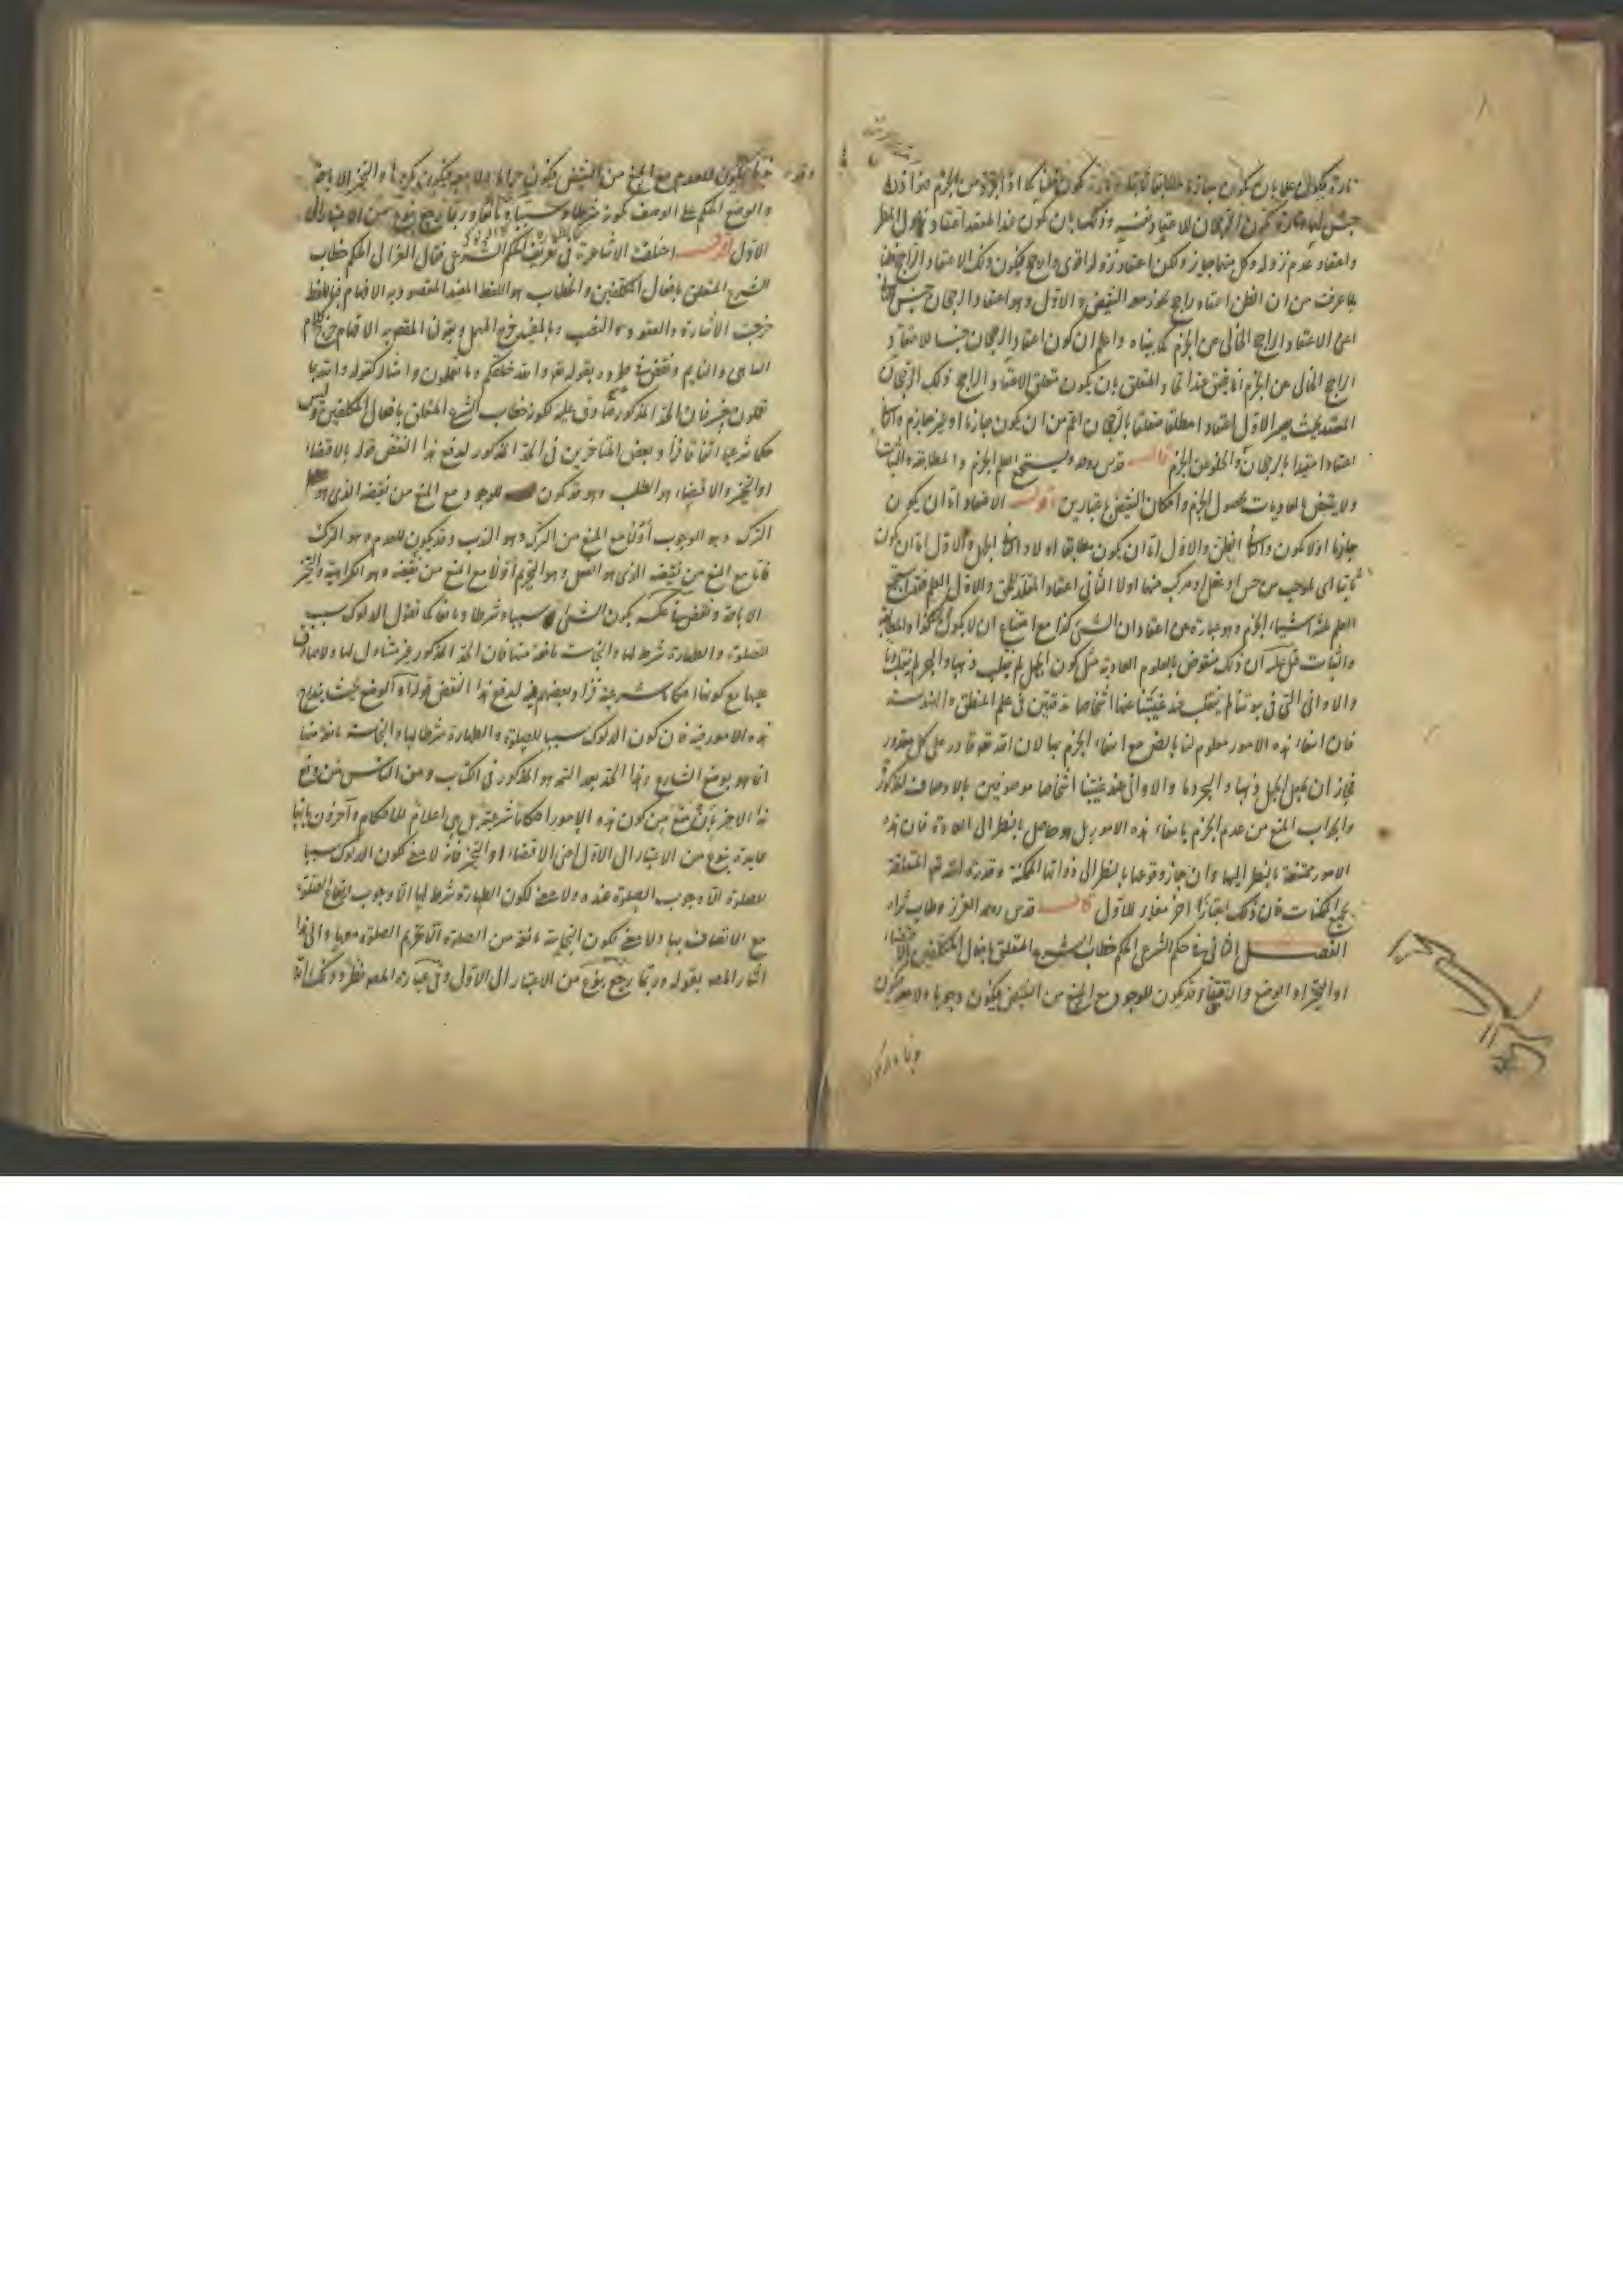 واعتقاد عدم نزوله وكل منهما جايز ولكن اعتقاد نزوله اقوى وارجح فيكون ذلك الاعتقاد الراجح ظنا
لما عرفت من ان الظن اعتقاد راجح يجوز معه النقيض والاول وهو اعتقاد الرجحان جنس
اعنى الاعتقاد الراجح الخالى من الجزم كما بيناه واعلم ان كون اعتقاد الرجحان جنسا للاعتقاد
الراجح الخالى من الجزم انما يتحقق عند اتحاد المتعلق بان يكون متعلق الاعتقاد الراجح ذلك الرجحان
المعتقد بحيث يصير الاول اعتقادا مطلقا متعلقا بالرجحان اعم من ان يكون جازما او غير جازم
اعتقادا مقيدا بالرجحان والخلو عن الجزم قال قدس روحه ويستجمع العلم الجزم والمطابقة والثبات
ولا ينتقض بالعاديات لحصول الجزم وامكان النقيض باعتبارين اقول الاعتقاد اما ان يكون
جازما اولا يكون والثانى الظن والاول اما ان يكون مطابقا اولا والثانى الجهل والاول اما ان يكون
ثابتا اى لموجب من حس او عقل او مركب منهما اولا الثانى اعتقاد المقلد للحق والاول العلم فقد استجمع
العلم ثلثة اشياء الجزم وهو عبارة عن اعتقاد ان الشئ كذا مع امتناع ان لا يكون كذا والمطابقة
والثبات قيل عليه ان ذلك منقوض بالعلوم العادية مثل كون الجبل لم ينقلب ذهبا والبحر لم ينقلب دما
والاوانى التى فى بيوتنا لم ينقلب عند غيبتنا عنها اشخاصا مدققين فى علم المنطق والهندسة
فان انتفاء هذه الامور معلوم لنا بالضرورة مع انتفاء الجزم بها لان الله تعم قادر على كل مقدور
فجاز ان يجعل الجبل ذهبا والبحر دما والاوانى عند غيبتنا اشخاصا موصوفين بالاوصاف المذكورة
والجواب المنع من عدم الجزم بانتفاء هذه الامور بل هو حاصل بالنظر الى العادة فان هذه
الامور ممتنعة بالنظر اليها وان جاز وقوعها بالنظر الى ذواتها الممكنة وقدرة الله تعم المتعلقة
بجميع الممكنات فان ذلك اعتبار اخر مغاير للاول قال قدس روحه العزيز وطاب ثراه
الفصل الثانى فى حكم الشرعى الحكم خطاب الشرع المتعلق بافعال المكلفين بالاقتضاء
او التخيير او الوضع والاقتضاء قد يكون للوجود مع المنع من النقيض فيكون وجوبا ولا معه فيكون
ندبا وقد يكون للعدم مع المنع من النقيض فيكون حراما ولا معه فيكون مكروها والتخيير الاباحة
والوضع الحكم على الوصف بكونه شرطا وسببا ومانعا وربما رجع بنوع من الاعتبار الى
الاول اقول اختلفت الاشاعرة فى تعريف الحكم الشرعى فقال الغزالى الحكم خطاب
الشرع المتعلق بافعال المكلفين والخطاب هو اللفظ المفيد المقصود به الافهام فباللفظ
خرجت الاشارة والعقود والنصب وبالمفيد خرج المهمل وبقولنا المقصود به الافهام خرج كلام
الساهى والنايم ونقض فى طرده بقوله تعم والله خلقكم وما تعملون وامثاله كقوله والله بما
تعملون خبير فان الحد المذكور صادق عليه لكونه خطاب الشرع المتعلق بافعال المكلفين وليس
حكما شرعيا اتفاقا فزاد بعض المتاخرين فى الحد المذكور لدفع هذا النقض قوله بالاقتضاء
او التخيير والاقتضاء هو الطلب وهو قد يكون للوجود مع المنع من نقيضه الذى هو
الترك وهو الوجوب أو لا مع المنع من الترك وهو الندب وقد يكون للعدم وهو الترك
فاما مع المنع من نقيضه الذى هو الفعل وهو التحريم أو لا مع المنع من نقيضه وهو الكراهية والتخيير
الاباحة ونقض فى عكسه بكون الشئ سببا وشرطا ومانعا كما نقول الدلوك سبب
للصلوة والطهارة شرط لها والنجاسة مانعة منها فان الحد المذكور غير شامل لها ولا صادق
عليها مع كونها احكاما شرعية فزاد بعضهم فيه لدفع هذا النقض قوله او الوضع بحيث يندرج
هذه الامور فيه فان كون الدلوك سببا للصلوة والطهارة شرطا لها والنجاسة مانعة منها
انما هو بوضع الشارع وهذا الحد بعد التتمة هو المذكور فى الكتاب ومن الناس من دفع
هذا الاخير بان منع من كون هذه الامور احكاما شرعية بل هى اعلام للاحكام وآخرون بانها
عايدة بنوع من الاعتبار الى الاول اعنى الاقتضاء او التخيير فانه لا معنى لكون الدلوك سببا
للصلوة الا وجوب الصلوة عنده ولا معنى لكون الطهارة شرطا لها الا وجوب ايقاع الصلوة
مع الاتصاف بها ولا معنى لكون النجاسة مانعة من الصلوة الا تحريم الصلوة معها والى هذا
اشار المصه بقوله وربما رجع بنوع من الاعتبار الى الاول وفى عبارة المصه نظر وذلك انه